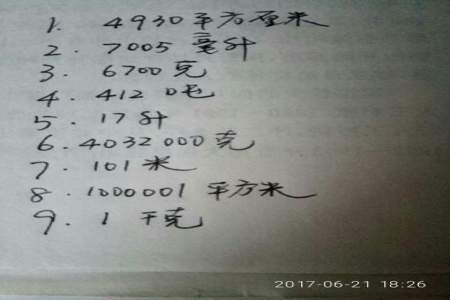 1. 4930平方厘米
2. 7005 毫升
3. 6700克
4. 412 吨
5. 17升
6. 4032000克
7. 101米
8. 1000001 平方米
9. 1 千克
2017-06-21 18:26